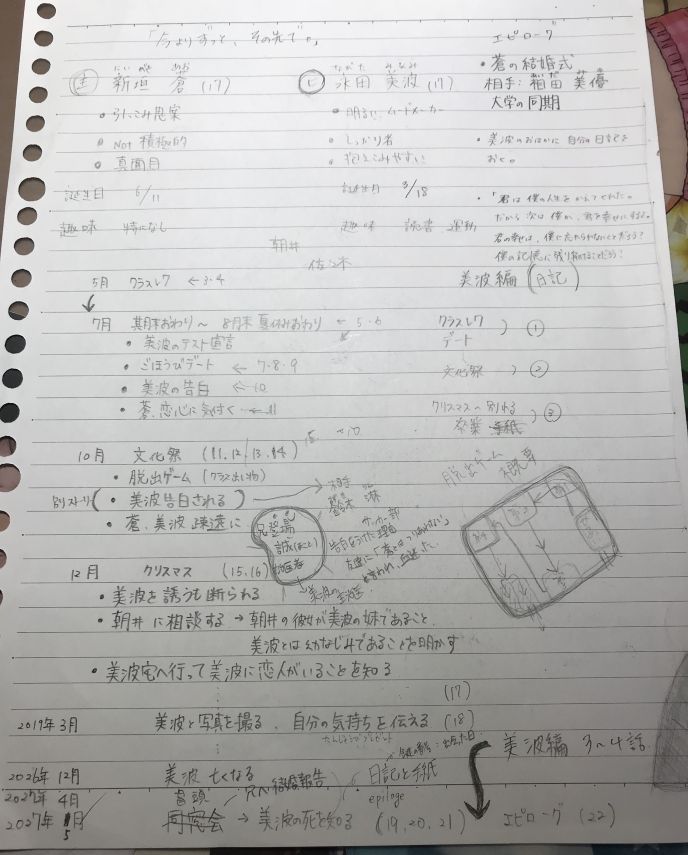 「今よりずっと、その先で。」
にいがき あお
㊤ 新垣 蒼 (17)
• 引っこみ思案
• Not 積極的
• 真面目
誕生日 6/11
趣味 特になし
ながた みなみ
永田 美波 (17)
• 明るい、ムードメーカー
• しっかり者
• 抱えこみやすい
誕生日 3/18
趣味 読書 運動
朝井
佐々木
エピローグ
• 蒼の結婚式
相手: 稲田 美優
大学の同期
• 美波のおはかに自分の日記を
おく。
•「君は僕の人生をかえてくれた。
だから次は僕が、君を幸せにするよ。
君の幸せは、僕に忘れられないことだろう?
僕の記憶に残り続けることだろう!
美波編(日記)
5月 クラスレク ← 3・4
7月 期末おわり〜8月末 夏休みおわり ← 5・6
• 美波のテスト宣言
• ごほうびデート ← 7・8・9
• 美波の告白 ← 10
• 蒼、恋心に気付く ← 11
クラスレク
デート ) ①
文化祭 ) ②
クリスマス〜別れる
卒業 手紙 ) ③
10月 文化祭 (11.12.13.14)
• 脱出ゲーム (クラス出し物)
別ストーリー ( • 美波告白される )
• 蒼、美波 疎遠に
→ 相手
鈴木 淋
サッカー部
告白をうけた理由
兄登場
誠(まこと)
脱出ゲーム
12月 クリスマス (15,16)
• 美波を誘うも断られる
• 朝井に相談する → 朝井の彼女が美波の妹であること、
美波とは幼なじみであることを明かす
• 美波宅へ行って美波に恋人がいることを知る
(17)
2019年3月 美波と写真を撮る、自分の気持ちを伝える (18)
たんじょうびプレゼント
美波編 3〜4話
2026年12月 美波 亡くなる
日記と手紙
2027年 4月 冒頭 兄へ結婚報告
epiloge
2027年 5月 同窓会 → 美波の死を知る (19,20,21)
エピローグ (22)